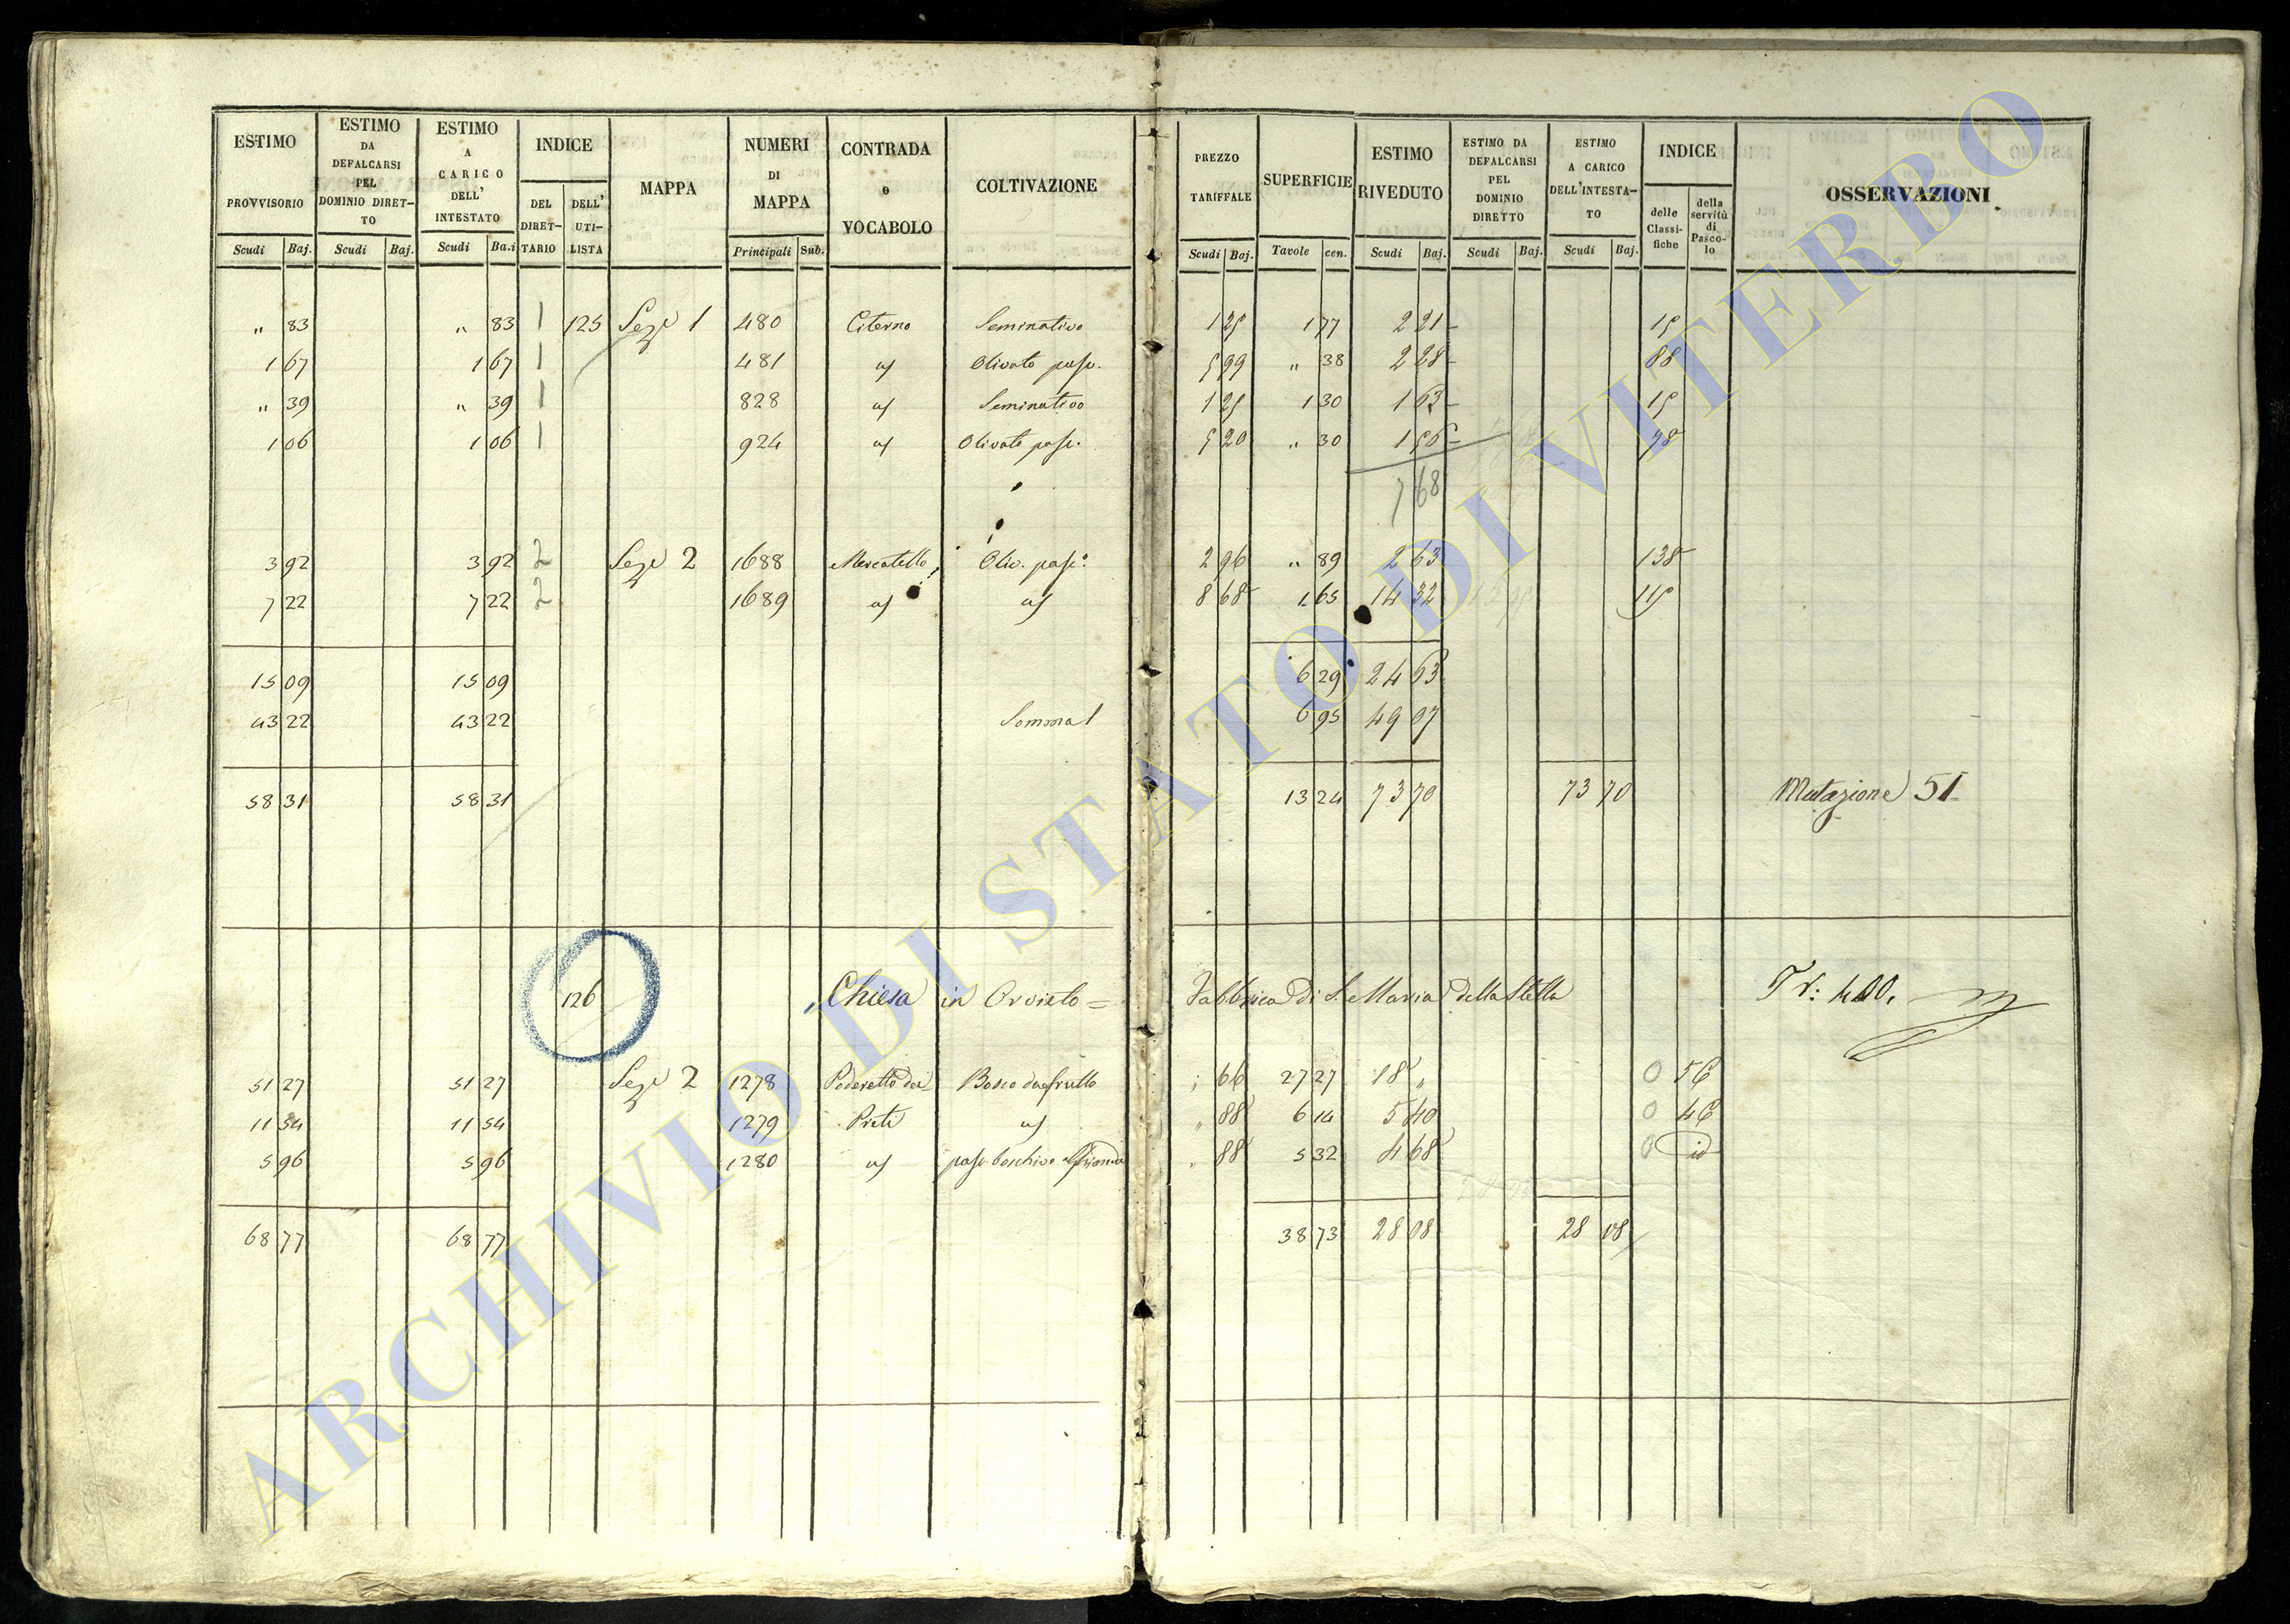 ESTIMO PROVVISORIO | ESTIMO DA DEFALCARSI PEL DOMINIO DIRET-TO | ESTIMO A CARICO DELL' INTESTATO | INDICE | MAPPA | NUMERI DI MAPPA | CONTRADA o VOCABOLO | COLTIVAZIONE | PREZZO TARIFFALE | SUPERFICIE | ESTIMO RIVEDUTO | ESTIMO DA DEFALCARSI PEL DOMINIO DIRETTO | ESTIMO A CARICO DELL'INTESTA-TO | INDICE | OSSERVAZIONI
DEL DIRET-TARIO | DELL' UTI-LISTA | delle Classi-fiche | della servitù di Pasco-lo
Scudi | Baj. | Scudi | Baj. | Scudi | Ba.i | Principali | Sub. | Scudi | Baj. | Tavole | cen. | Scudi | Baj. | Scudi | Baj. | Scudi | Baj.
" 83 | " 83 | 1 | 125 | Sez.e 1 | 480 | Citerno | Seminativo | 1 25 | 1 77 | 2 21 | 15
1 67 | 1 67 | 1 | 481 | " | Olivato pasc. | 5 99 | " 38 | 2 28 | 88
" 39 | " 39 | 1 | 828 | " | Seminativo | 1 25 | 1 30 | 1 63 | 15
1 06 | 1 06 | 1 | 924 | " | Olivato pasc. | 5 20 | " 30 | 1 56 | 98
7 68
3 92 | 3 92 | 2 | Sez.e 2 | 1688 | Mercatello | Oliv. pasc. | 2 96 | " 89 | 2 63 | 138
7 22 | 7 22 | 2 | 1689 | " | " | 8 68 | 1 65 | 14 32 | 115
15 09 | 15 09 | 6 29 | 24 63
43 22 | 43 22 | Somma | 6 95 | 49 07
58 31 | 58 31 | 13 24 | 73 70 | 73 70 | Mutazione 51
126 | Chiesa in Orvieto = Fabbrica di S. Maria della Stella | Tr: 400.
51 27 | 51 27 | Sez.e 2 | 1278 | Poderetto dei | Bosco da frutto | " 66 | 27 27 | 18 " | 0 | 5C
11 54 | 11 54 | 1279 | Preti | " | " 88 | 6 14 | 5 40 | 0 | 4C
5 96 | 5 96 | 1280 | " | pasc. boschivo | " 88 | 5 32 | 4 68 | 0 | id
68 77 | 68 77 | 38 73 | 28 08 | 28 08
ARCHIVIO DI STATO DI VITERBO